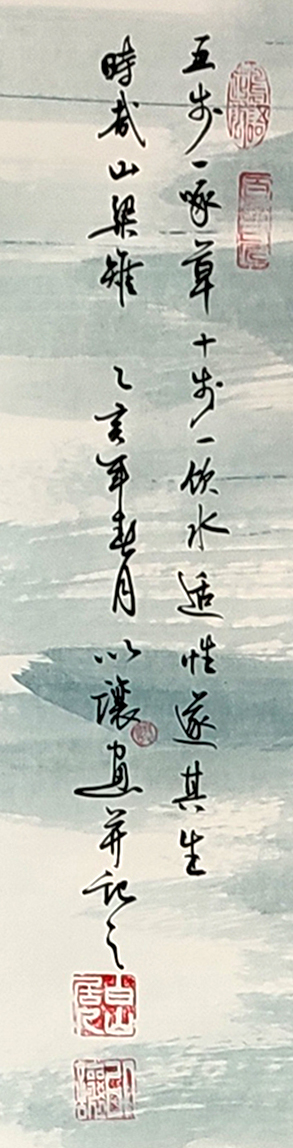 五步一啄草十步一饮水适性遂其生
時哉山梁雉 乙亥年春月以讓画并記之